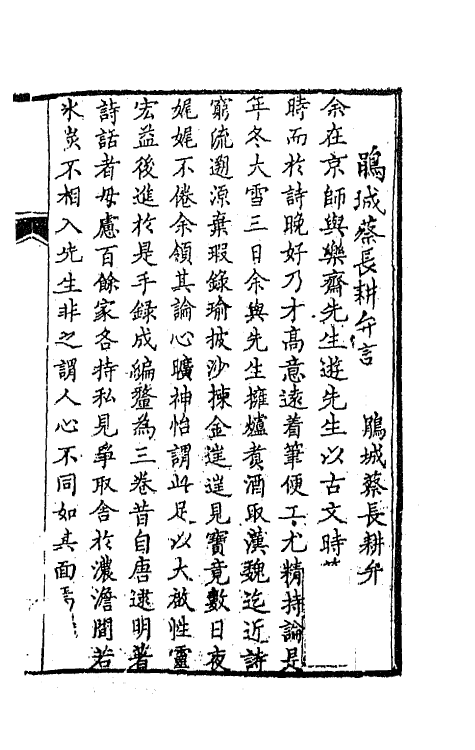 鵑城蔡長耕弁言　鵑城蔡長耕弁
余在京師與樂齋先生遊先生以古文時
時而於詩晚好乃才高意遠着筆便工尤精持論是
年冬大雪三日余與先生擁爐煑酒取漢魏迄近詩
窮流遡源棄瑕錄瑜披沙揀金迬迬見寶竟數日夜
娓娓不倦余領其論心曠神怡謂此足以大啟性靈
宏益後進於是手錄成編釐為三卷昔自唐逮明著
詩話者毋慮百餘家各持私見爭取舍於濃澹間若
氷炭不相入先生非之謂人心不同如其面焉